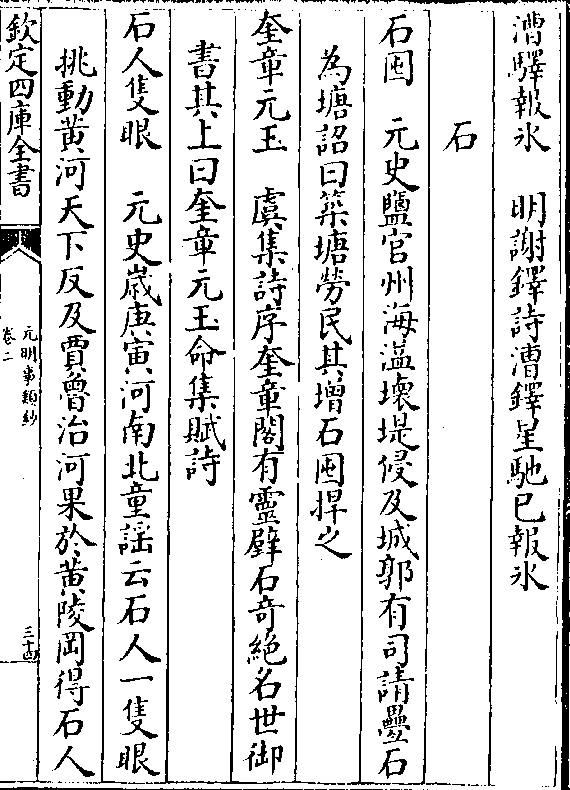 漕驛報氷　明謝鐸詩漕鐸星馳已報氷
石
石囤　元史鹽官州海溢壞堤侵及城郭有司請壘石
為塘詔曰築塘勞民其增石囤捍之
奎章元玉　虞集詩序奎章閣有靈壁石奇絶名世御
書其上曰奎章元玉命集賦詩
石人隻眼　元史歲庚寅河南北童謡云石人一隻眼
挑動黄河天下反及賈魯治河果於黄陵岡得石人
欽定四庫全書
元明事類鈔
卷二
三十四